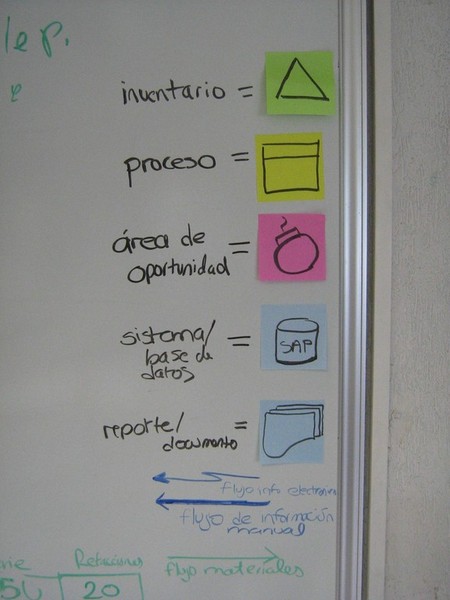 le p.
e
inventario =
proceso =
área de =
oportunidad
sistema/ =
base de
datos
SAP
reporte/ =
documento
flujo info electrónica
flujo de información
manual
Retraciones
20
flujo materiales